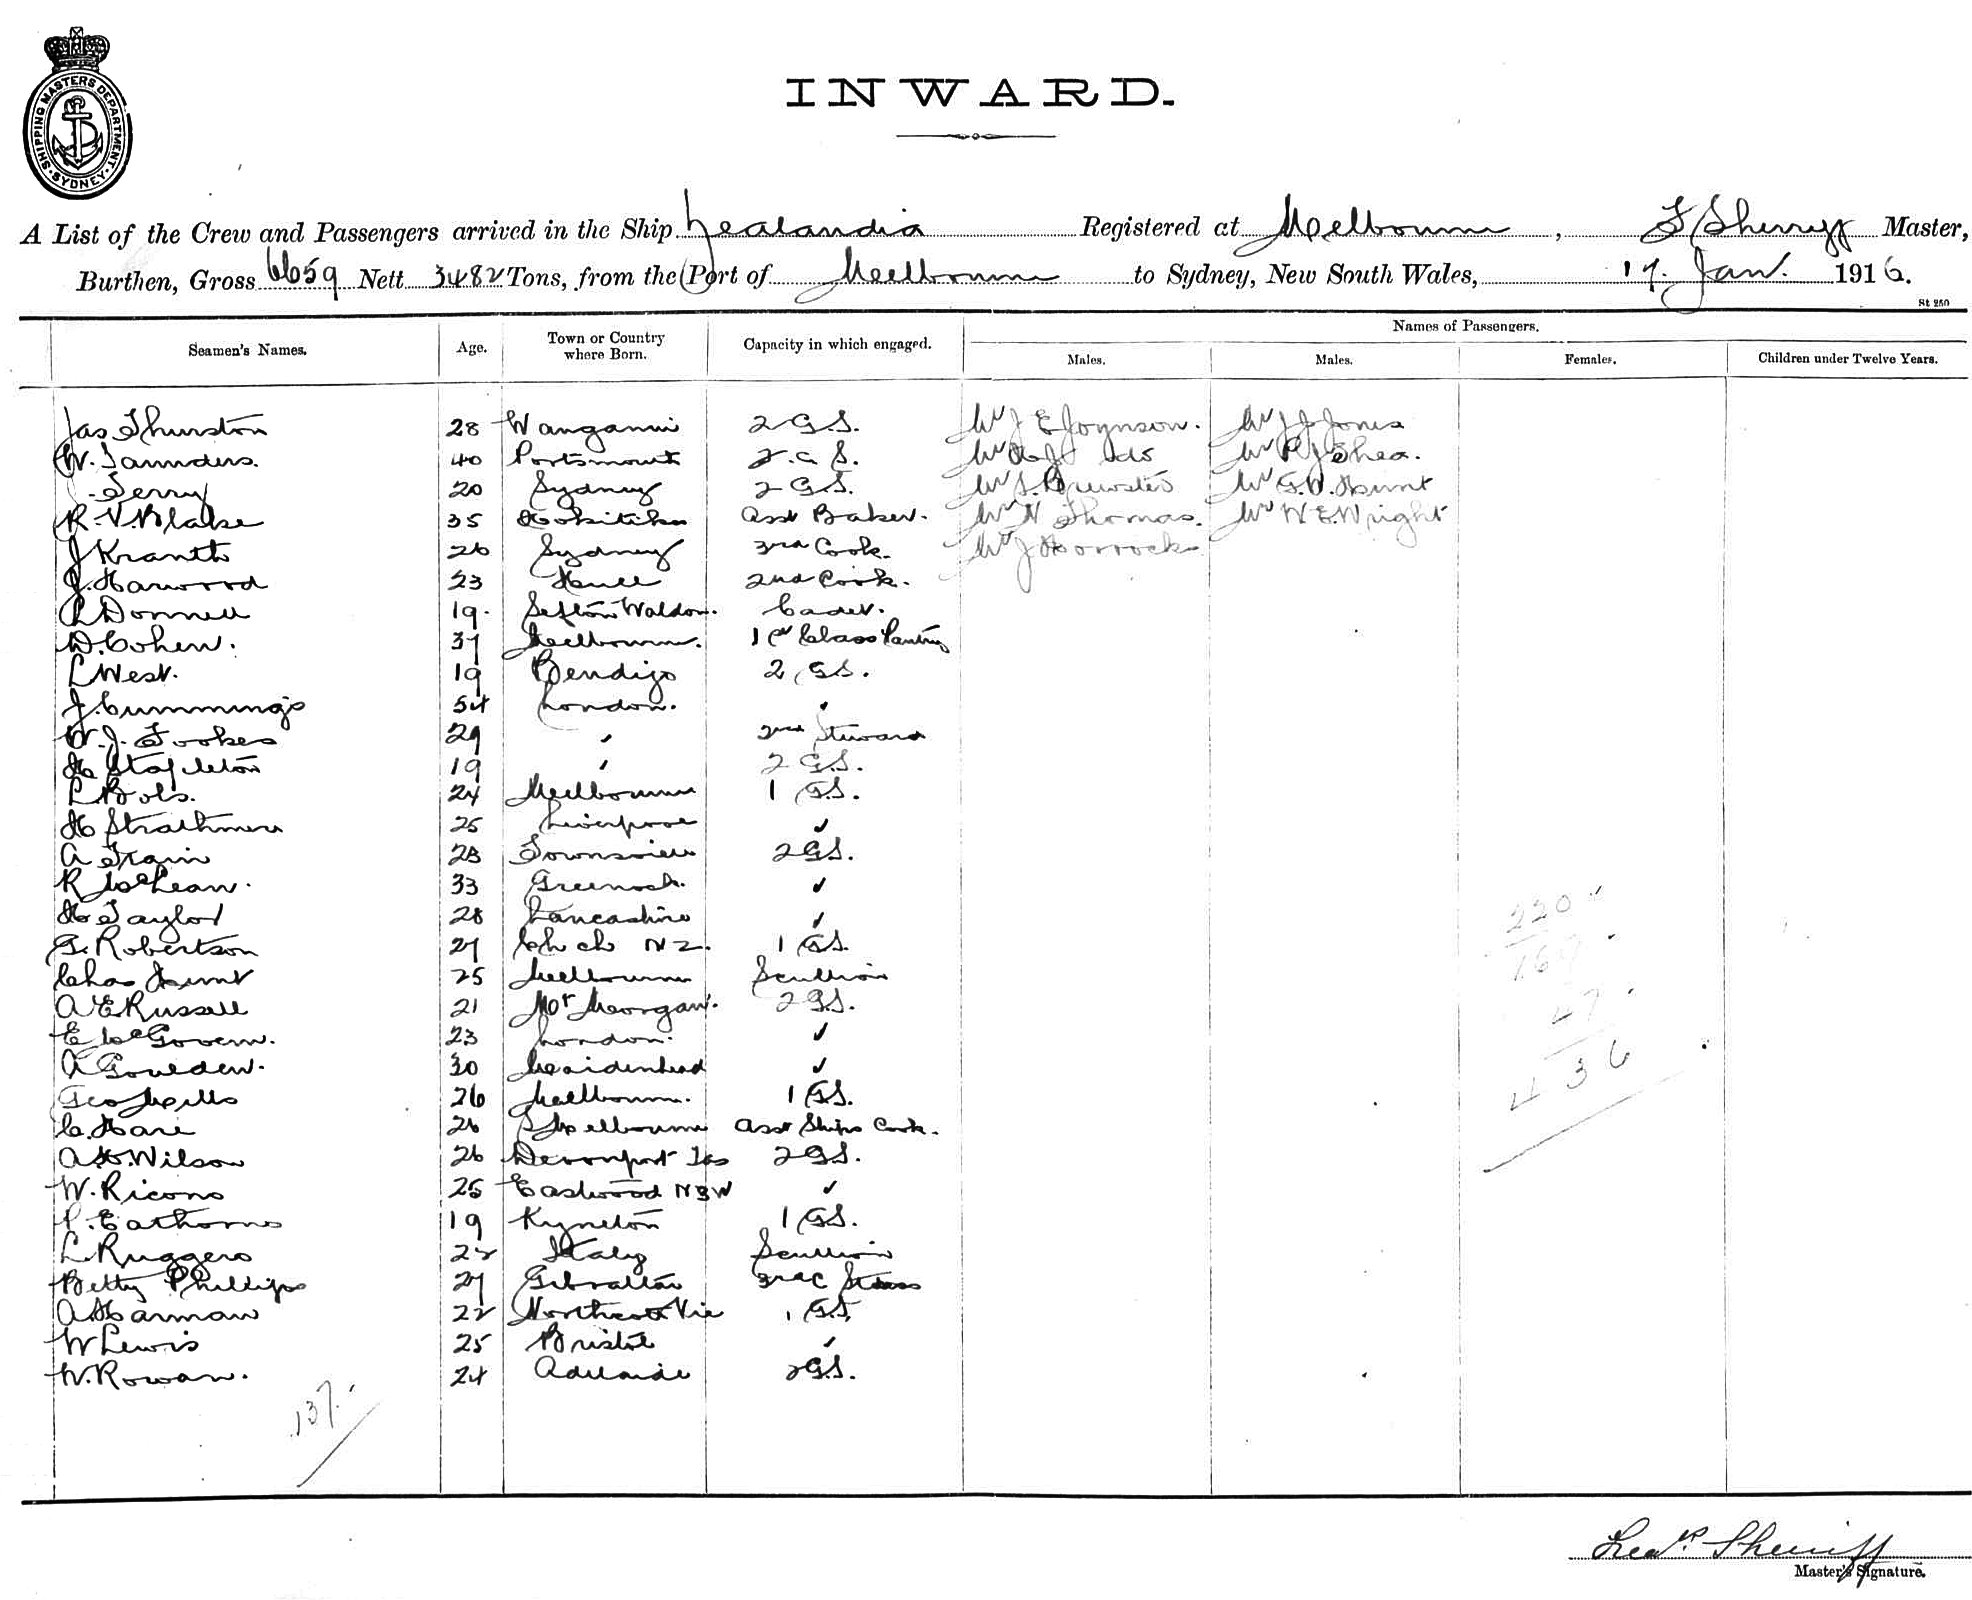 SHIPPING MASTERS DEPARTMENT
SYDNEY
INWARD.
A List of the Crew and Passengers arrived in the Ship Zealandia Registered at Melbourne, F Sherriff Master,
Burthen, Gross 6659 Nett 3482 Tons, from the Port of Melbourne to Sydney, New South Wales, 17. Jan. 1916.
St 250
Names of Passengers.
Seamen's Names. Age. Town or Country where Born. Capacity in which engaged. Males. Males. Females. Children under Twelve Years.
Jas Thurston 28 Wanganui 2 G.S. Mr J E Joynson. Mr J J Jones
W. Saunders. 40 Portsmouth 2.G S. Mr P J Shea.
Terry 20 Sydney 2 G.S. Mr S. Brewster Mr G.W. Hunt
R. V. Blake 35 Hokitika Asst Baker. Mr N Thomas. Mr W.E. Wright
J Kranth 26 Sydney 3rd Cook. Mr J Horrocks
J. Harwood 23 Hull 2nd Cook.
Donnell 19. Cadet.
D. Cohen. 37 Melbourne. 1st Class Pantry
L West. 19 Bendigo 2 G.S.
J. Cummings 54 London. "
W. J. Fookes 29 " 2nd Steward
H. Stapleton 19 " 2 G.S.
L Bols. 24 Melbourne 1 G.S.
H Strathmere 25 Liverpool "
A Train 23 Townsville 2 G.S.
R McLean. 33 Greenock. "
H Taylor 28 Lancashire "
G. Robertson 27 Ch ch N Z. 1 G.S.
Chas Hunt 25 Melbourne Scullion
A E Russell 21 Mt Morgan. 2 G.S.
E McGovern. 23 London. "
A Goulden. 30 Maidenhead "
Geo Mells 26 Melbourne. 1 G.S.
C. Hare 26 S Melbourne Asst Ships Cook.
A. H. Wilson 26 Devonport Tas 2 G.S.
W. Ricons 25 Eastwood NSW "
Eathorne 19 Kyneton 1 G.S.
L Ruggero 22 Italy Scullion
Betty Phillips 27 Gibraltar 3rd C Stwss
A. Harman 22 Northcote Vic 1 G.S.
W Lewis 25 Bristol "
W. Rowan. 24 Adelaide 2 G.S.
220
169
47
436
137.
Sherriff
Master's Signature.